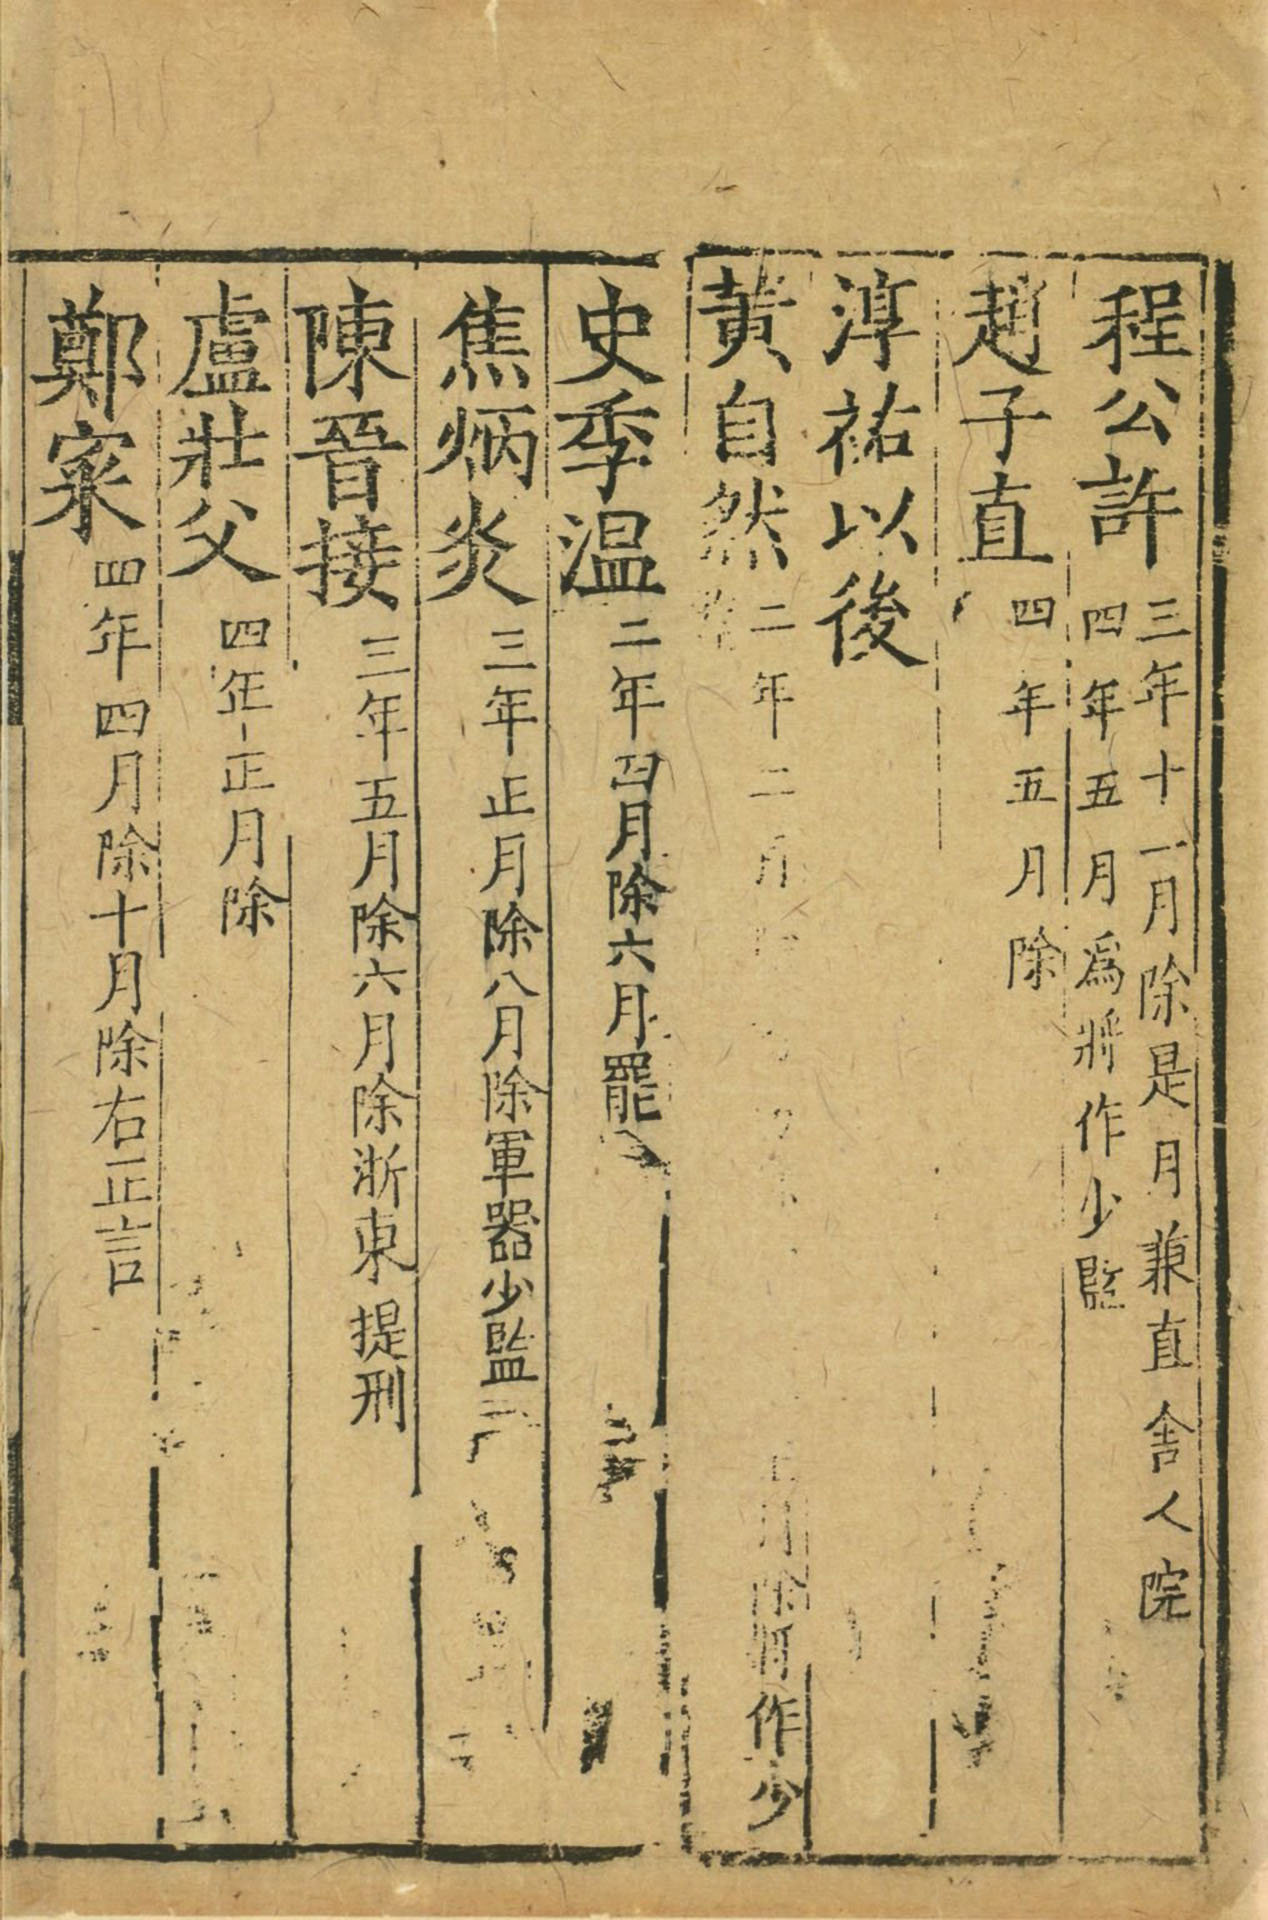 程公許 三年十一月除是月兼直舍人院
四年五月爲將作少監
趙子直 四年五月除
淳祐以後
黄自然 二年二月 月除將作少
史季温 二年四月除六月罷
焦炳炎 三年正月除八月除軍器少監
陳晉接 三年五月除六月除浙東提刑
盧壯父 四年正月除
鄭寀 四年四月除十月除右正言